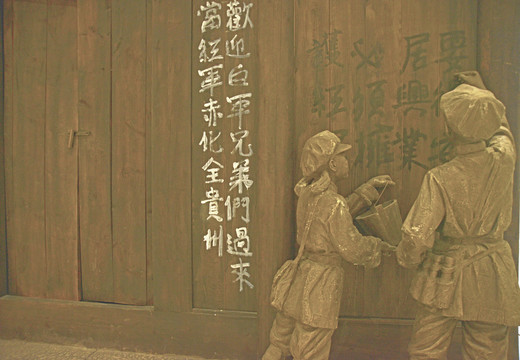 要安
居興業
必須擁
護紅
歡迎白軍兄弟們過來
當紅軍赤化全貴州